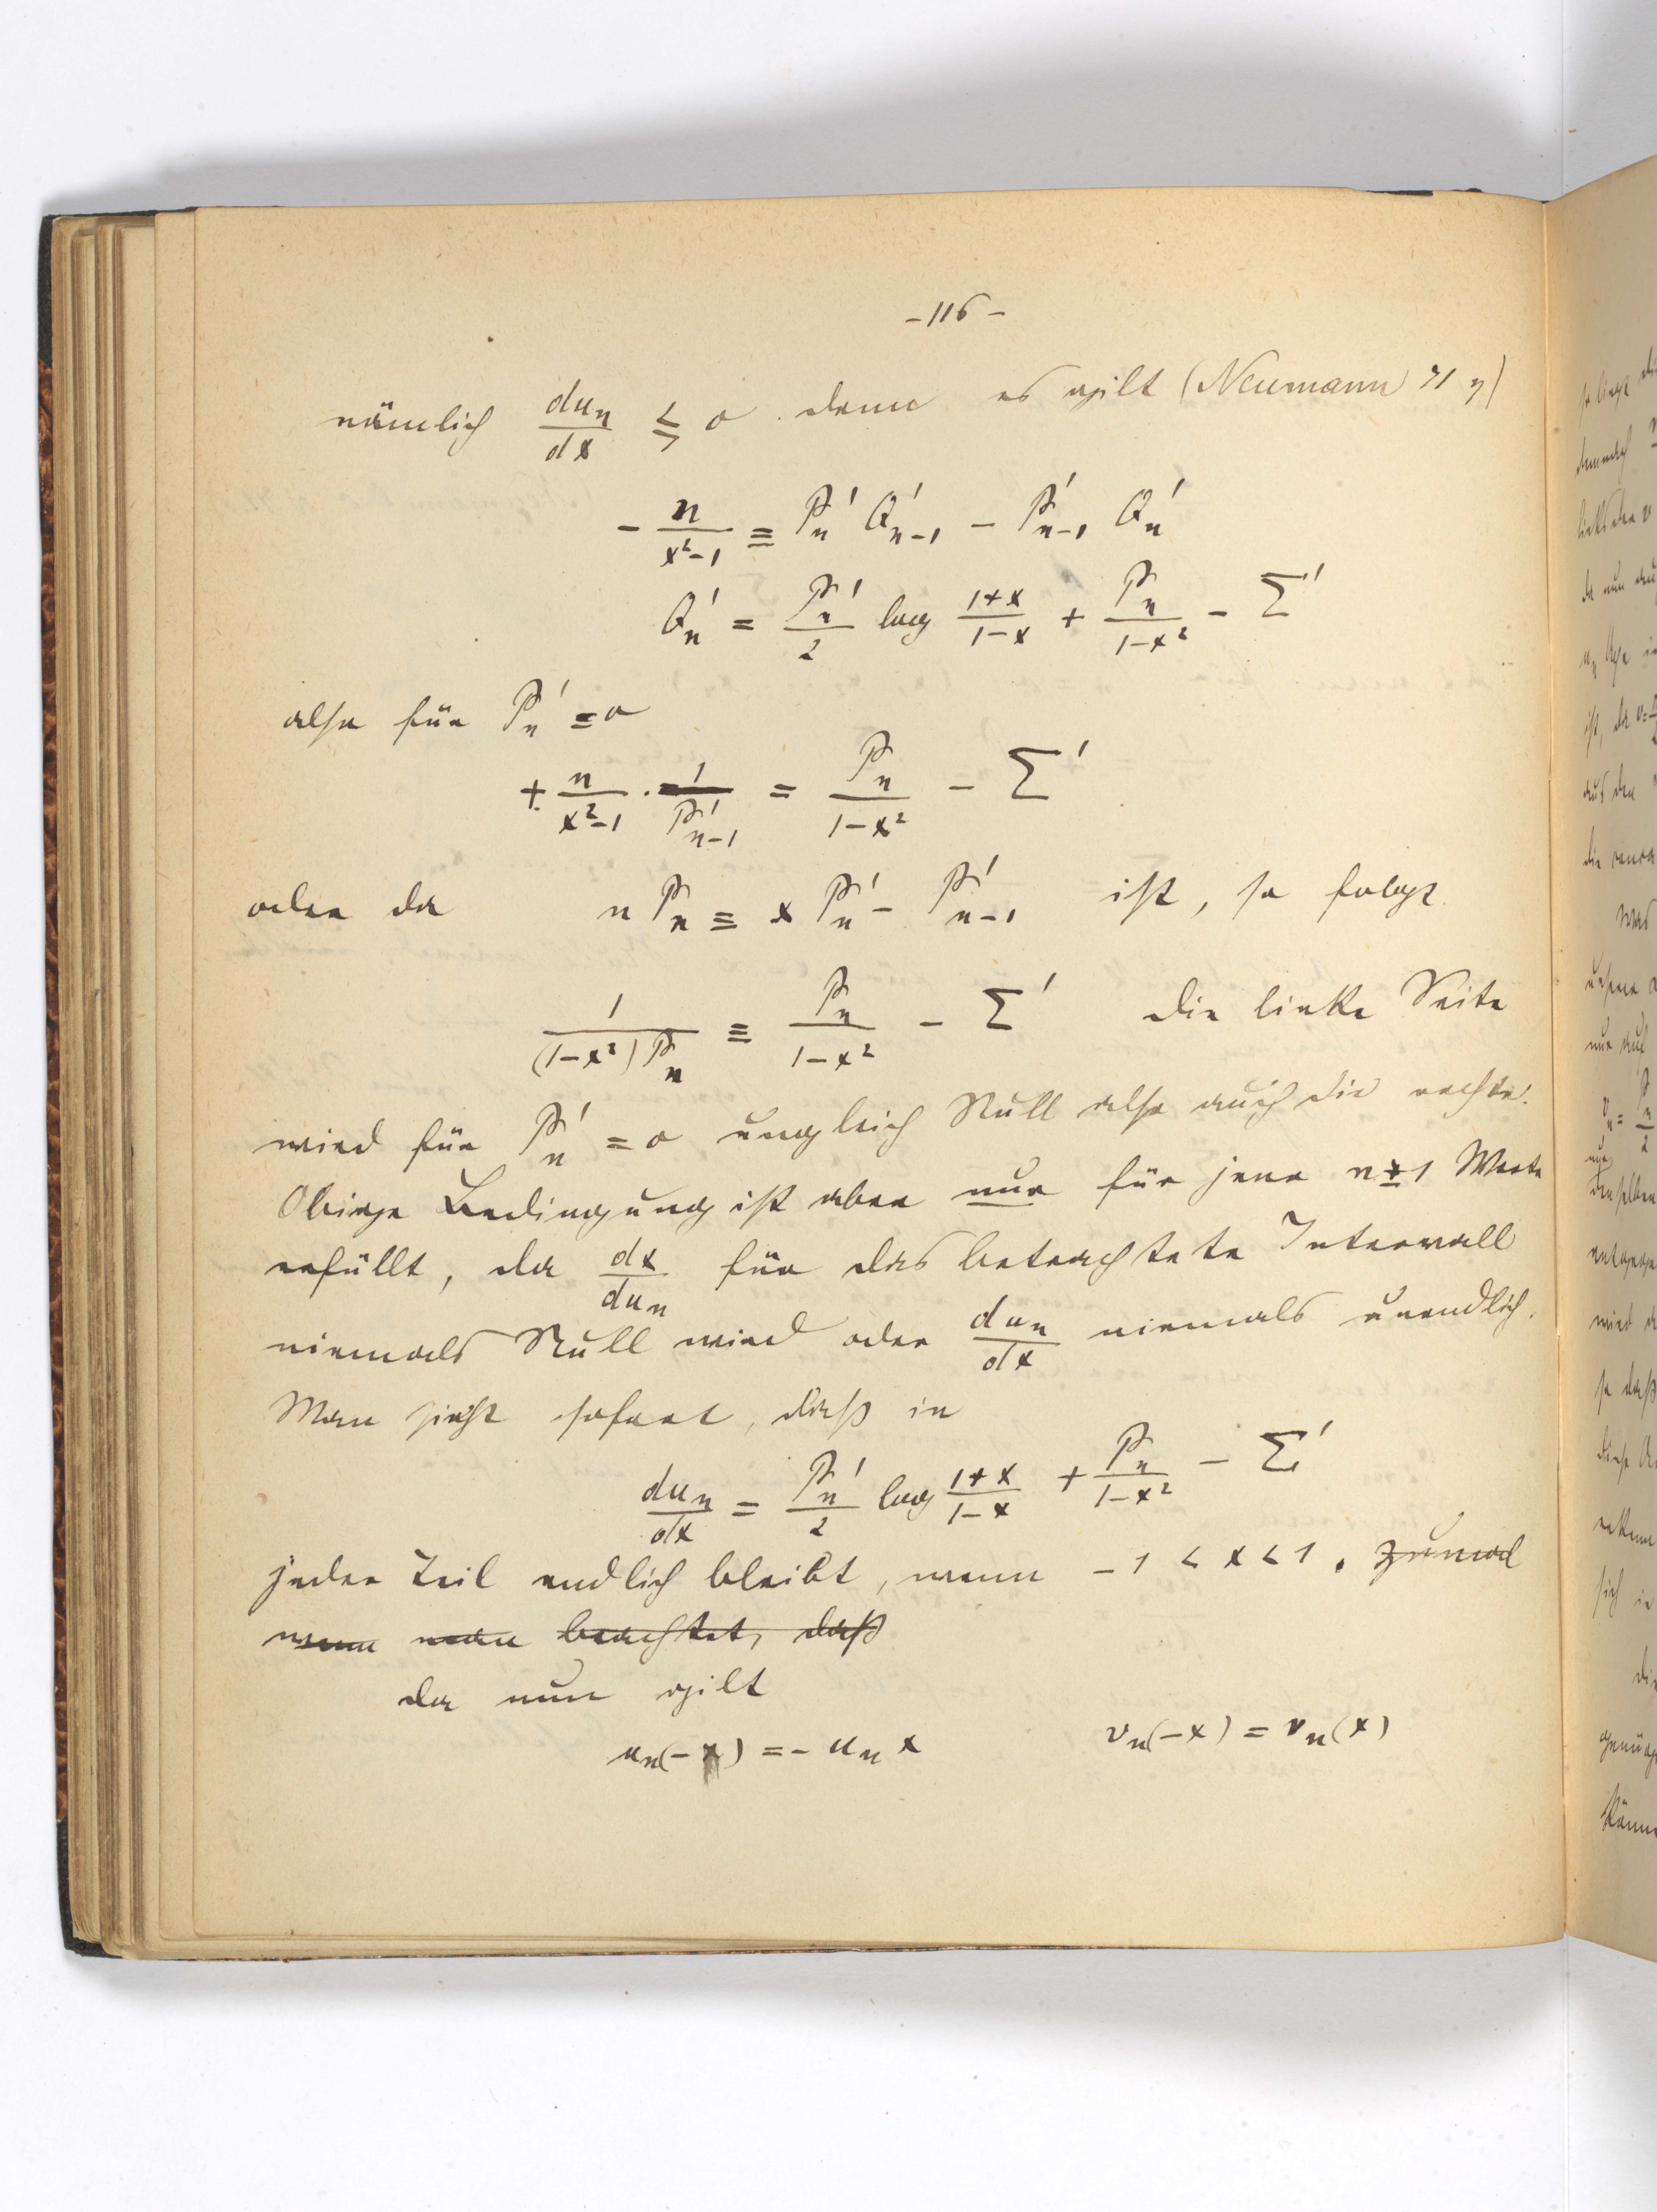 -116-
nämlich du_n/dx ≶ 0 . denn es gilt (Neumann 71 η)
- n/(x²-1) ≡ P_n' Q'_{n-1} - P'_{n-1} Q_n'
Q_n' = P_n'/2 log (1+x)/(1-x) + P_n/(1-x²) - Σ'
also für P_n' = 0
+ n/(x²-1) · 1/P'_{n-1} = P_n/(1-x²) - Σ'
oder da n P_n ≡ x P_n' - P'_{n-1} ist, so folgt
1/((1-x²) P_n) ≡ P_n/(1-x²) - Σ' die linke Seite
wird für P_n' = 0 ungleich Null also auch die rechte.
Obige Bedingung ist aber nur für jene n±1 Werte
erfüllt, da dx/du_n für das betrachtete Intervall
niemals Null wird oder du_n/dx niemals unendlich.
Man sieht sofort, daß in
du_n/dx = P_n'/2 log (1+x)/(1-x) + P_n/(1-x²) - Σ'
jeder Teil endlich bleibt, wenn -1 < x < 1 . zumal
wenn man beachtet, daß
da nun gilt
u_n(-x) = - u_n x v_n(-x) = v_n(x)